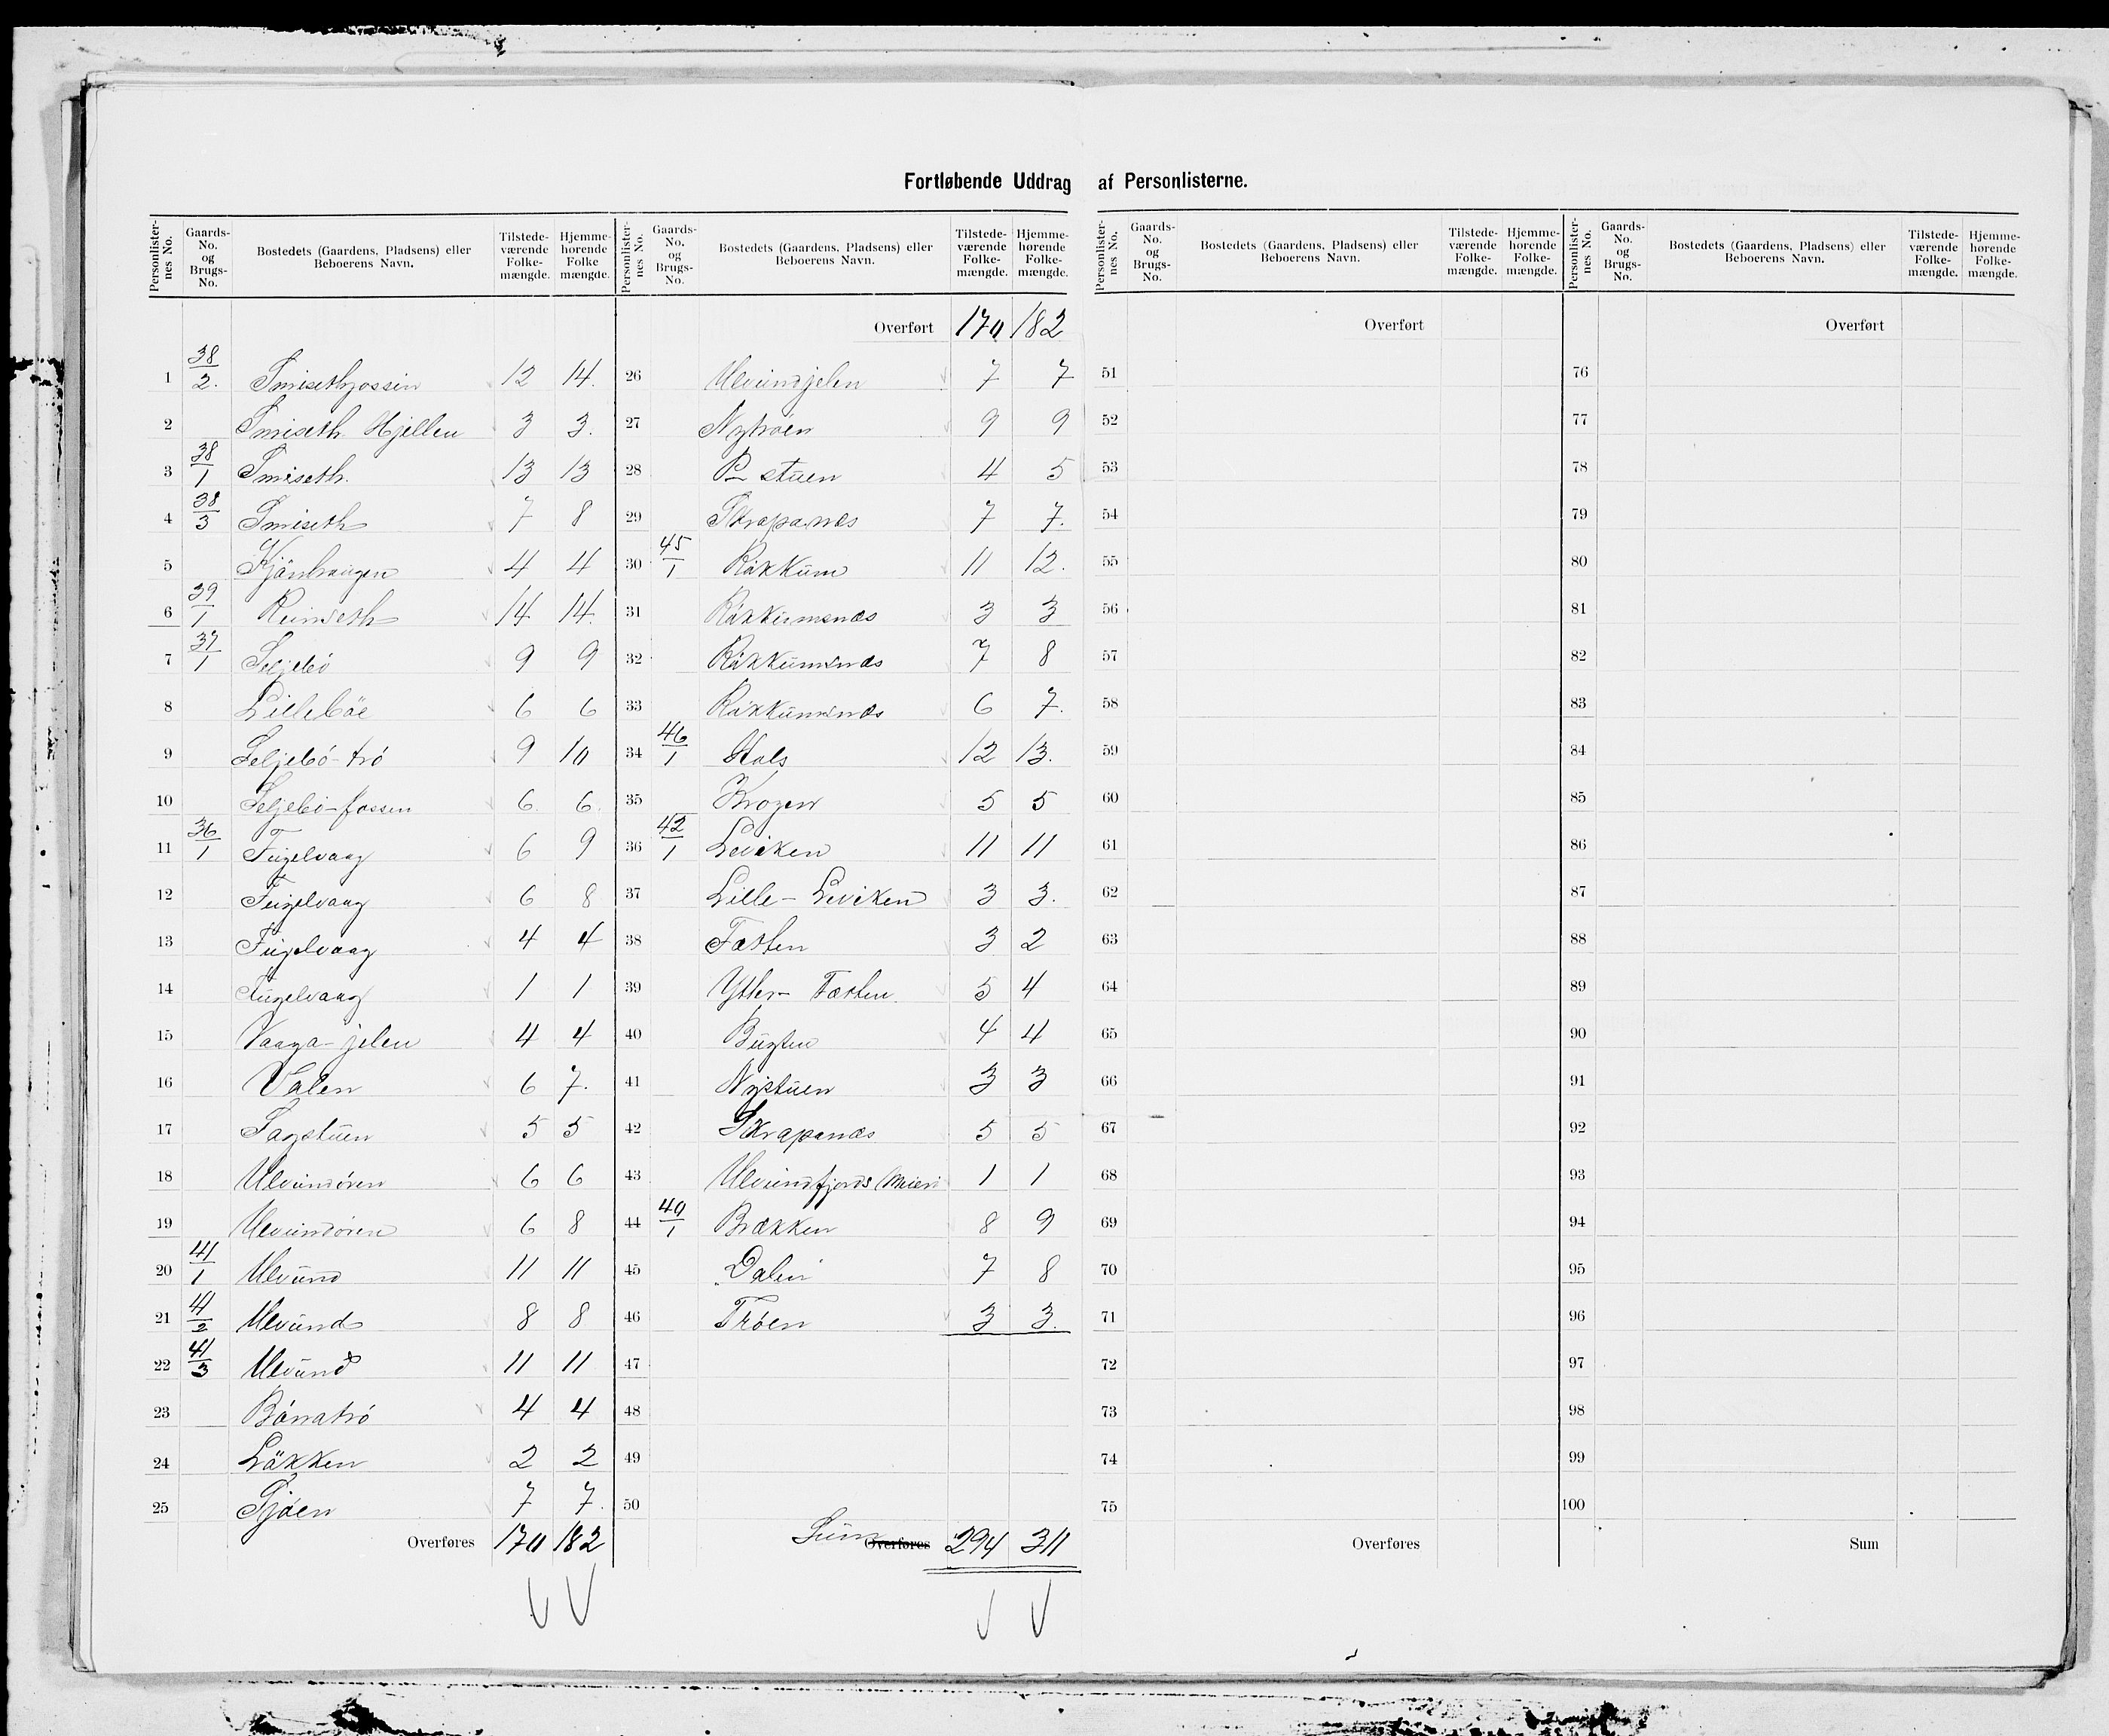 Fortløbende Uddrag af Personlisterne.
Personlister-nes No. Gaards-No. og Brugs-No. Bostedets (Gaardens, Pladsens) eller Beboerens Navn. Tilstede-værende Folke-mængde. Hjemme-hørende Folke mængde.
1 38/2. 12 14.
2 Smiseth Hjellen 3 3.
3 38/1 Smiseth. 13 13
4 38/3 Smiseth 7 8
5 4 4
6 39/1 Reinseth 14 14.
7 37/1 Seljebö 9 9
8 Lilleböe 6 6
9 Seljebö-trö 9 10
10 Seljebö-fossen 6. 6.
11 36/1 Fügelvaag 6 9
12 Fügelvaag 6 8
13 Fügelvaag 4 4
14 Fügelvaag 1 1
15 Vaaga-jelen 4 4
16 Valen 6 7.
17 Sagstüen 5 5
18 Ulvündören 6 6
19 Ulvündören 6 8
20 41/1 Ulvünd 11 11
21 41/2 Ulvünd 8 8
22 41/3 Ulvünd 11 11
23 4 4
24 Läkken 2 2
25 Sjöen 7 7.
Overføres 170 182
Personlister-nes No. Gaards-No. og Brugs-No. Bostedets (Gaardens, Pladsens) eller Beboerens Navn. Tilstede-værende Folke-mængde. Hjemme-hørende Folke-mængde.
Overført 170 182
26 Ulvündjelen 7 7
27 Nytröen 9 9
28 stüen 4 5
29 Skrapanæs 7 7.
30 45/1 Räkküm 11 12.
31 Räkkümsnæs 3 3
32 Räkkümsnæs 7 8
33 Räkkümsnæs 6 7.
34 46/1 Hals 12 13.
35 Krogen 5 5
36 42/1 Leviken 11 11
37 Lille-Leviken 3 3.
38 Fæsten 3 2
39 Ytter-Fæsten. 5 4
40 Bügten 4 4
41 Nystüen 3 3
42 Skrapanæs 5 5
43 Ulvündfjords Meieri 1 1
44 40/1 Brækken 8 9
45 Dalen 7 8
46 Tröen 3 3.
47
48
49
50
Süm Overføres 294 311
Personlister-nes No. Gaards-No. og Brugs-No. Bostedets (Gaardens, Pladsens) eller Beboerens Navn. Tilstede-værende Folke-mængde. Hjemme-hørende Folke-mængde.
Overført
51
52
53
54
55
56
57
58
59
60
61
62
63
64
65
66
67
68
69
70
71
72
73
74
75
Overføres
Personlister-nes No. Gaards-No. og Brugs-No. Bostedets (Gaardens, Pladsens) eller Beboerens Navn. Tilstede-værende Folke-mængde. Hjemme-hørende Folke-mængde.
Overført
76
77
78
79
80
81
82
83
84
85
86
87
88
89
90
91
92
93
94
95
96
97
98
99
100
Sum